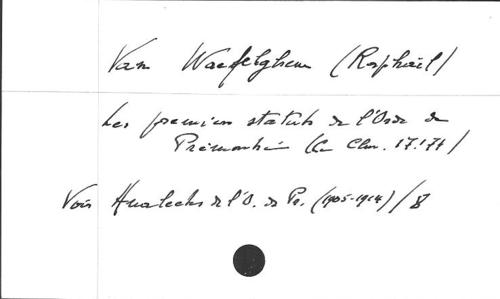 Van Waefelghem (Raphaël)
Les premiers statuts de l'Ordre de
Prémontré (Le Clm. 17.174)
Voir Analectes de l'O. de Pr. (1905-1914)/8